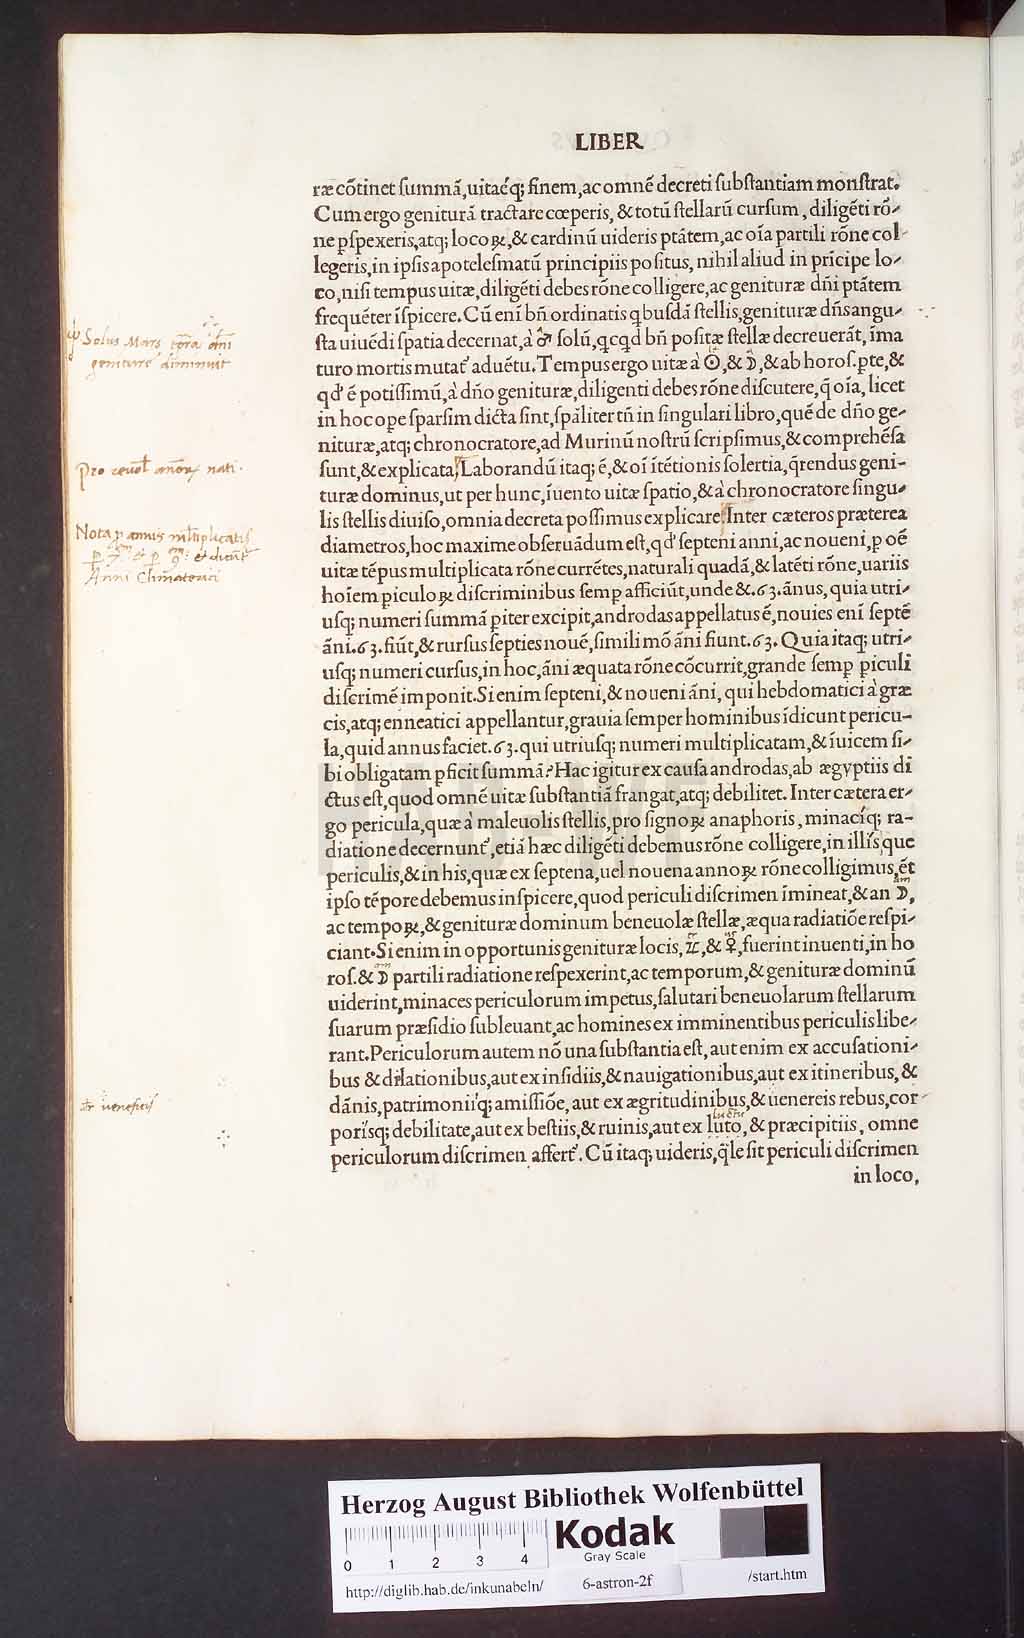 LIBER
ræ cõtinet summã, uitaéq; finem, ac omnẽ decreti substantiam monstrat.
Cum ergo geniturã tractare cœperis, & totũ stellarũ cursum, diligẽti rõ-
ne ꝑspexeris, atq; locoꝝ, & cardinũ uideris ptãtem, ac oĩa partili rõne col-
legeris, in ipsis apotelesmatũ principiis positus, nihil aliud in prĩcipe lo-
co, nisi tempus uitæ, diligẽti debes rõne colligere, ac genituræ dñi ptãtem
frequẽter ĩspicere. Cũ enĩ bñ ordinatis qbusdã stellis, genituræ dñs angu-
sta uiuẽdi spatia decernat, à ♂ solũ, qcqd bñ positæ stellæ decreuerãt, ĩma
turo mortis mutat᷑ aduẽtu. Tempus ergo uitæ à ☉, & ☽, & ab horos. pte, &
qd' ẽ potissimũ, à dño genituræ, diligenti debes rõne discutere, q̃ oĩa, licet
in hoc ope sparsim dicta sint, spãliter tñ in singulari libro, quẽ de dño ge-
nituræ, atq; chronocratore, ad Murinũ nostrũ scripsimus, & comprehẽsa
sunt, & explicata, Laborandũ itaq; ẽ, & oĩ ĩtẽtionis solertia, q̃rendus geni-
turæ dominus, ut per hunc, ĩuento uitæ spatio, & à chronocratore singu-
lis stellis diuiso, omnia decreta possimus explicare Inter cæteros præterea
diametros, hoc maxime obseruãdum est, qd' septeni anni, ac noueni, ꝑ oẽ
uitæ tẽpus multiplicata rõne currẽtes, naturali quadã, & latẽti rõne, uariis
hoĩem ꝑiculoꝝ discriminibus semꝑ afficiũt, unde &. 63. ãnus, quia utri-
usq; numeri summã ꝑiter excipit, androdas appellatus ẽ, nouies enĩ septẽ
ãni. 63. fiũt, & rursus septies nouẽ, simili mõ ãni fiunt. 63. Quia itaq; utri-
usq; numeri cursus, in hoc, ãni æquata rõne cõcurrit, grande semꝑ ꝑiculi
discrimẽ imponit. Si enim septeni, & noueni ãni, qui hebdomatici à græ
cis, atq; enneatici appellantur, grauia semper hominibus ĩdicunt pericu-
la, quid annus faciet. 63. qui utriusq; numeri multiplicatam, & ĩuicem si-
bi obligatam ꝑficit summã? Hac igitur ex causa androdas, ab ægyptiis di
ctus est, quod omnẽ uitæ substantiã frangat, atq; debilitet. Inter cætera er-
go pericula, quæ à maleuolis stellis, pro signoꝝ anaphoris, minacíq; ra-
diatione decernunt᷑, etiã hæc diligẽti debemus rõne colligere, in illís que
periculis, & in his, quæ ex septena, uel nouena annoꝝ rõne colligimus, ẽt
ipso tẽpore debemus inspicere, quod periculi discrimen ĩmineat, & an ☽,
ac tempoꝝ, & genituræ dominum beneuolæ stellæ, æqua radiatiõe respi-
ciant. Si enim in opportunis genituræ locis, ♃, & ♀, fuerint inuenti, in ho
ros. & ☽ partili radiatione respexerint, ac temporum, & genituræ dominũ
uiderint, minaces periculorum impetus, salutari beneuolarum stellarum
suarum præsidio subleuant, ac homines ex imminentibus periculis libe-
rant. Periculorum autem nõ una substantia est, aut enim ex accusationi-
bus & dilationibus, aut ex insidiis, & nauigationibus, aut ex itineribus, &
dãnis, patrimoniíq; amissiõe, aut ex ægritudinibus, & uenereis rebus, cor-
porisq; debilitate, aut ex bestiis, & ruinis, aut ex luto, & præcipitiis, omne
periculorum discrimen affert᷑. Cũ itaq; uideris, q̃le sit periculi discrimen
in loco,
Solus Mars
geniture diminuit
Pro reuol annoꝝ nati.
Nota ꝑ annis multiplicatis
Anni Climaterici
veneficij
HAB-WF
Herzog August Bibliothek Wolfenbüttel
0 1 2 3 4
Kodak
Gray Scale
http://diglib.hab.de/inkunabeln/
6-astron-2f
/start.htm